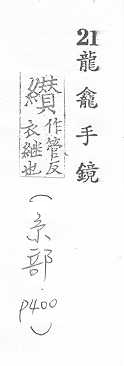 21龍龕手鏡
纉作管反衣継也（糸部 p400）